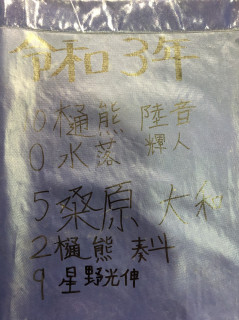 令和3年
0樋熊 陸音
0水落 輝人
5桑原 大和
2樋熊 奏斗
9星野光伸